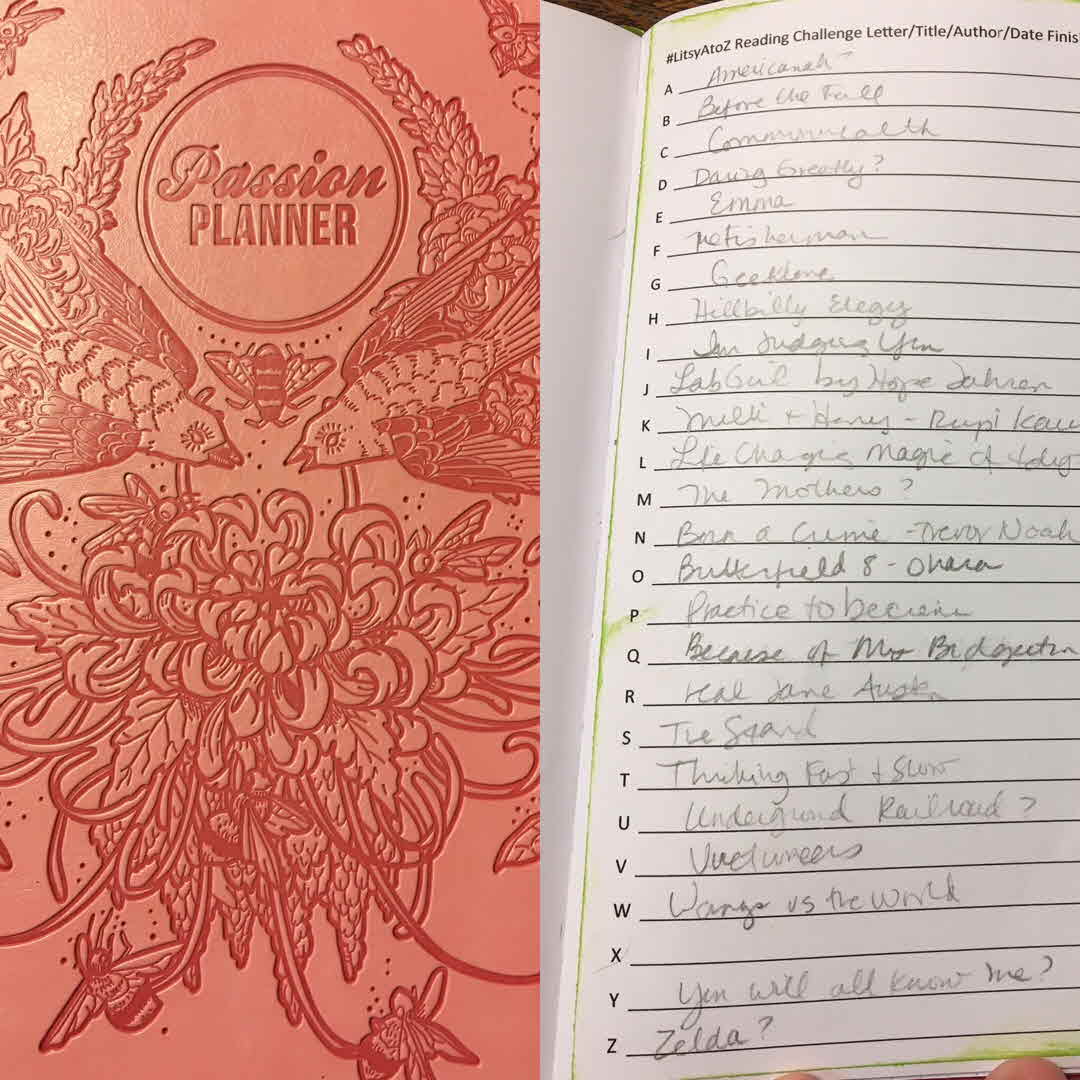 Passion
PLANNER
#LitsyAtoZ Reading Challenge Letter/Title/Author/Date Finis
A Americanah
B Before the Fall
C Commonwealth
D Daring Greatly?
E Emma
F fisherman
G Geektime
H Hillbilly Elegy
I I'm Judging You
J Lab Girl by Hope Jahren
K Milk + Honey - Rupi Kau
L Life Changing Magic of tidy
M The Mothers ?
N Born a Crime - Trevor Noah
O Butterfield 8 - Ohara
P Practice to
Q Because of Mr Bridgerton
R real Jane Austen
S The Stand
T Thinking Fast + Slow
U Underground Railroad ?
V
W Wangs vs the World
X
Y You will all know me?
Z Zelda ?